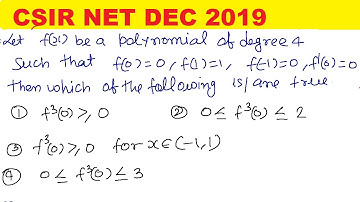 CSIR NET DEC 2019
Let f(x) be a polynomial of degree 4
Such that f(0)=0, f(1)=1, f(-1)=0, f'(0)=0
then which of the following is/are true
① f³(0) ≥ 0 ② 0 ≤ f³(0) ≤ 2
③ f³(0) ≥ 0 for x ∈ (-1,1)
④ 0 ≤ f³(0) ≤ 3